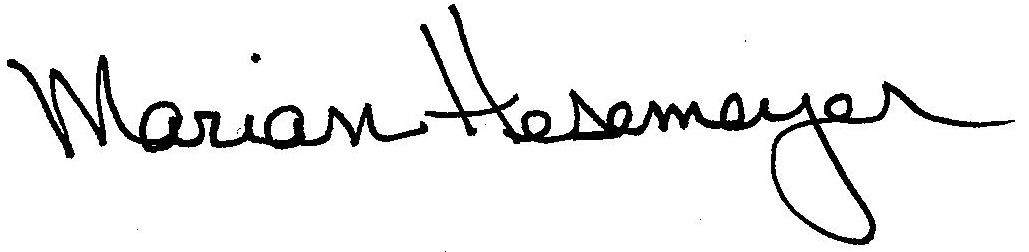 Marian Hesemeyer